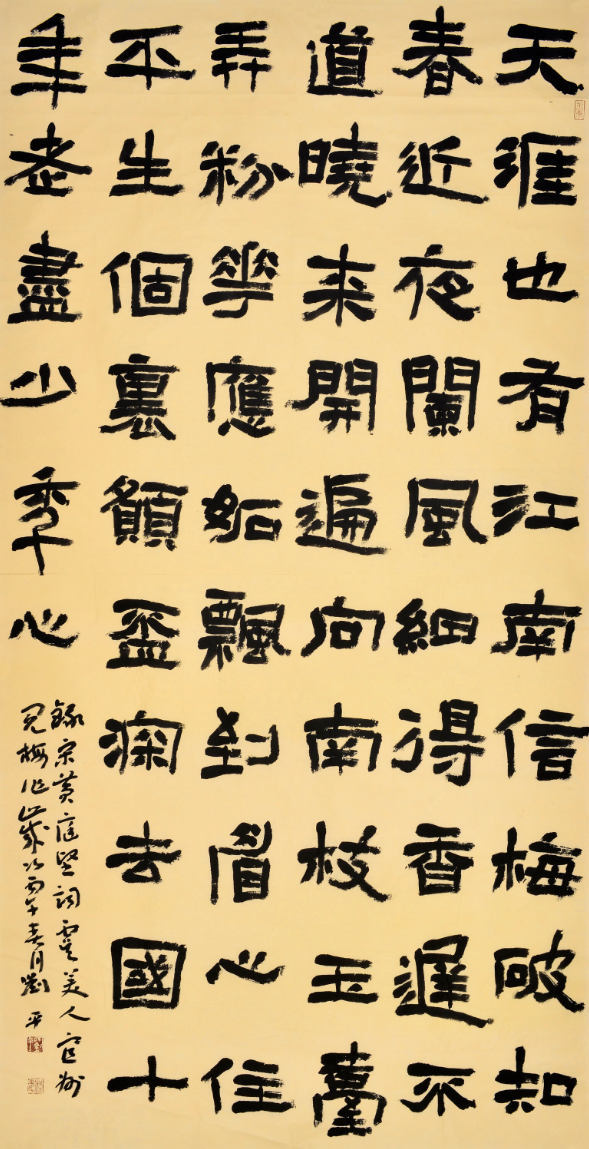 天涯也有江南信梅破知
春近夜闌風細得香遲不
道曉来開遍向南枝玉臺
弄粉華應妬飄到眉心住
平生個裏願盃深去國十
年老盡少秊心
錄宋黃庭堅詞虞美人宜州
見梅作歲次丙午春月劉平